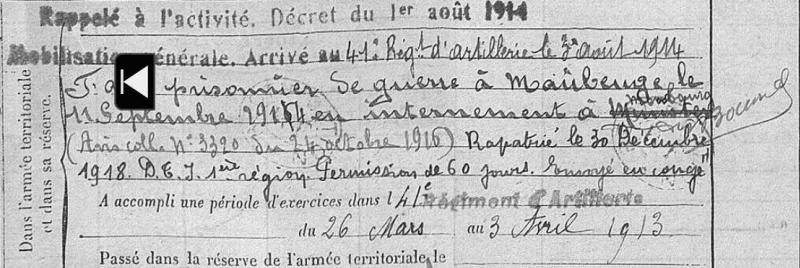 Rappelé à l'activité. Décret du 1er août 1914
Mobilisation Générale. Arrivé au 41e Régt d'artillerie le 3 août 1914
prisonnier de guerre à Maubeuge le
11 Septembre 1914 en internement à Munster
(Avis coll. N° 3320 du 24 octobre 1916) Rapatrié le 30 Décembre
1918. D.E.I. 1ère région Permission de 60 jours. Envoyé en congé
A accompli une période d'exercices dans l 41e Régiment d'Artillerie
du 26 Mars au 3 Avril 1913
Passé dans la réserve de l'armée territoriale le
Dans l'armée territoriale
et dans sa réserve.